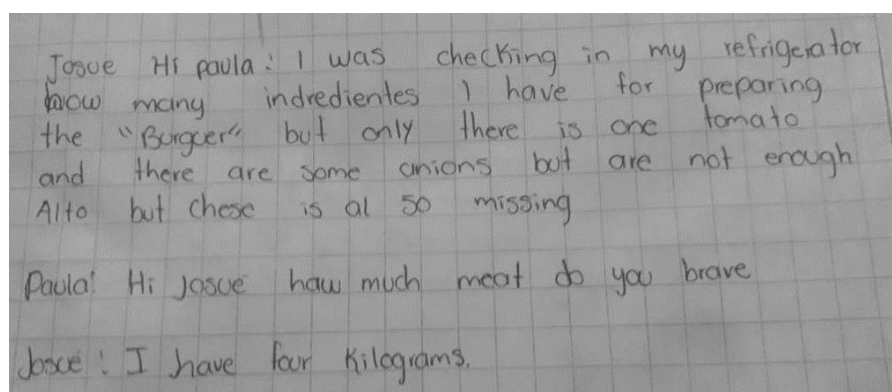 Josue Hi paula: I was checking in my refrigerator
how many indredientes I have for preparing
the "Burguer" but only there is one tomato
and there are some onions but are not enough
Alto but chese is al so missing
Paula: Hi Josue haw much meat do you brave
Josue: I have four kilograms.